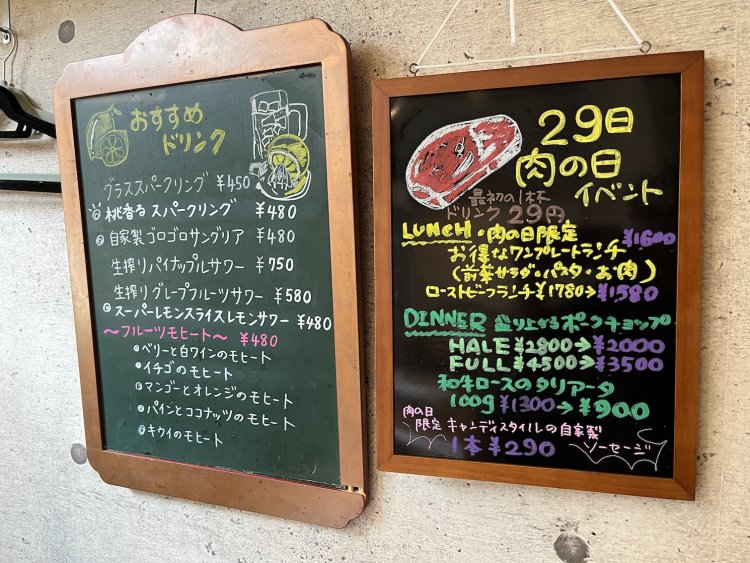 おすすめ
ドリンク
グラススパークリング ¥450
桃香る スパークリング ¥480
自家製ゴロゴロサングリア ¥480
生搾りパイナップルサワー ¥750
生搾りグレープフルーツサワー ¥580
スーパーレモンスライスレモンサワー ¥480
〜フルーツモヒート〜 ¥480
ベリーと白ワインのモヒート
イチゴのモヒート
マンゴーとオレンジのモヒート
パインとココナッツのモヒート
キウイのモヒート
29日
肉の日
イベント
最初の1杯
ドリンク 29円
LUNCH・肉の日限定 ¥1600
お得なワンプレートランチ
(前菜サラダ・パスタ・お肉)
ローストビーフランチ¥1780→¥1580
DINNER 盛り上がるポークチョップ
HALE ¥2800→¥2000
FULL ¥4500→¥3500
和牛ロースのタリアータ
100g ¥1300→¥900
肉の日
限定 キャンディスタイルの自家製
1本¥290 ソーセージ